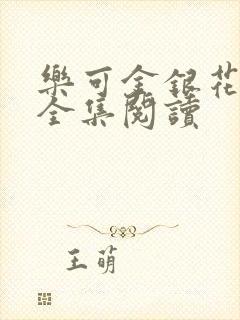 樂可金銀花
全集閱讀
王萌